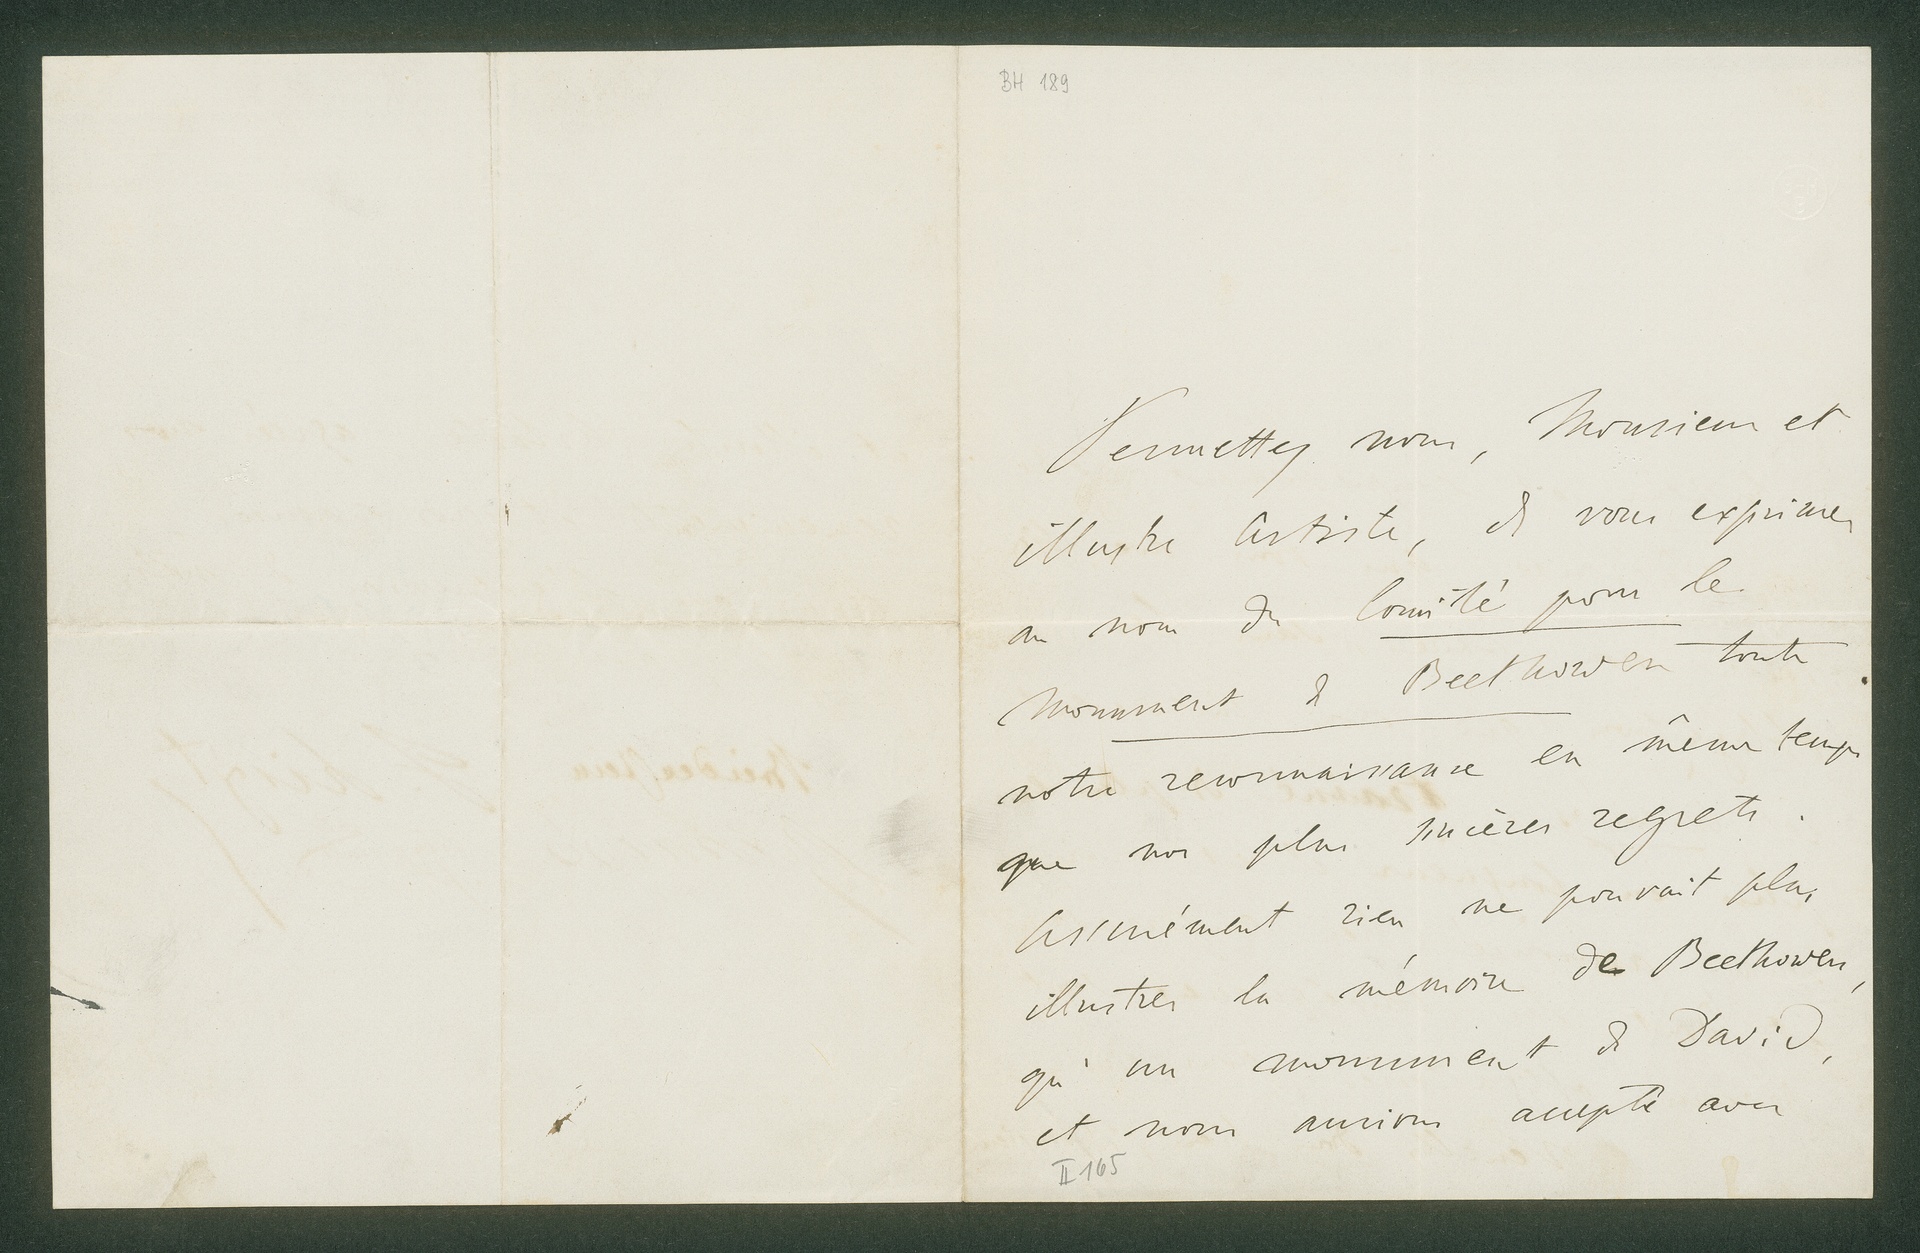 BH 189
Permettez nous, Monsieur et
illustre Artiste, de vous exprimer
au nom du Comité pour le
Monument de Beethowen toute
notre reconnaissance en même temps
que nos plus sincères regrets.
Assurément rien ne pouvait plus
illustrer la mémoire de Beethowen,
qu'un monument de David,
et nous aurions accepté avec
II 165